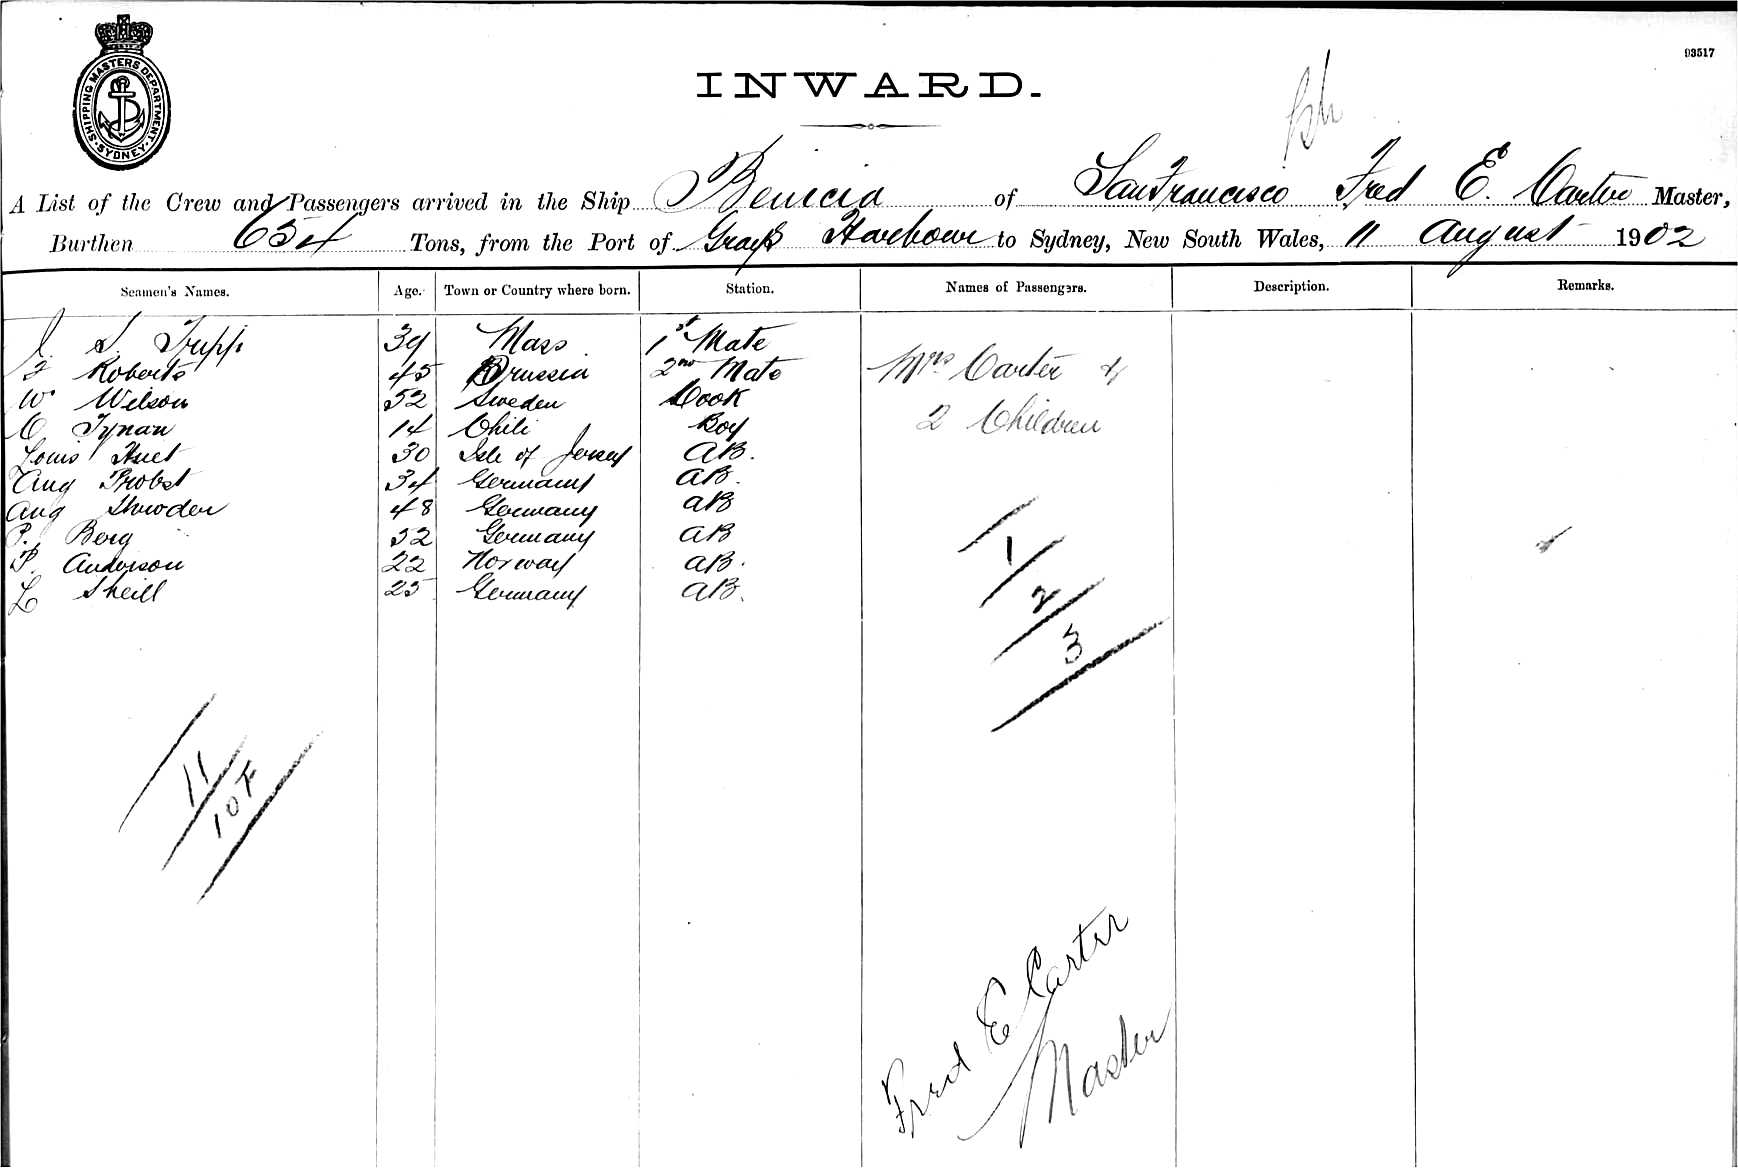 SHIPPING MASTERS DEPARTMENT · SYDNEY ·
93517
INWARD.
A List of the Crew and Passengers arrived in the Ship Benicia of San Francisco Fred E. Carter Master,
Burthen 654 Tons, from the Port of Grays Harbour to Sydney, New South Wales, 11 August 1902
Seamen's Names. Age. Town or Country where born. Station. Names of Passengers. Description. Remarks.
J. S. Tripp 39 Mass 1st Mate
Roberts 45 Prussia 2nd Mate Mrs Carter &
W Wilson 52 Sweden Cook
2 Children
C Tynan 14 Chili Boy
Louis Huet 30 Isle of Jersey AB.
Aug Probst 34 Germany AB.
Aug Shroder 48 Germany AB
P. Berg 32 Germany AB
P. Anderson 22 Norway AB.
L Sheill 25 Germany AB.
1
2
3
11
10 F
Fred E Carter
Master